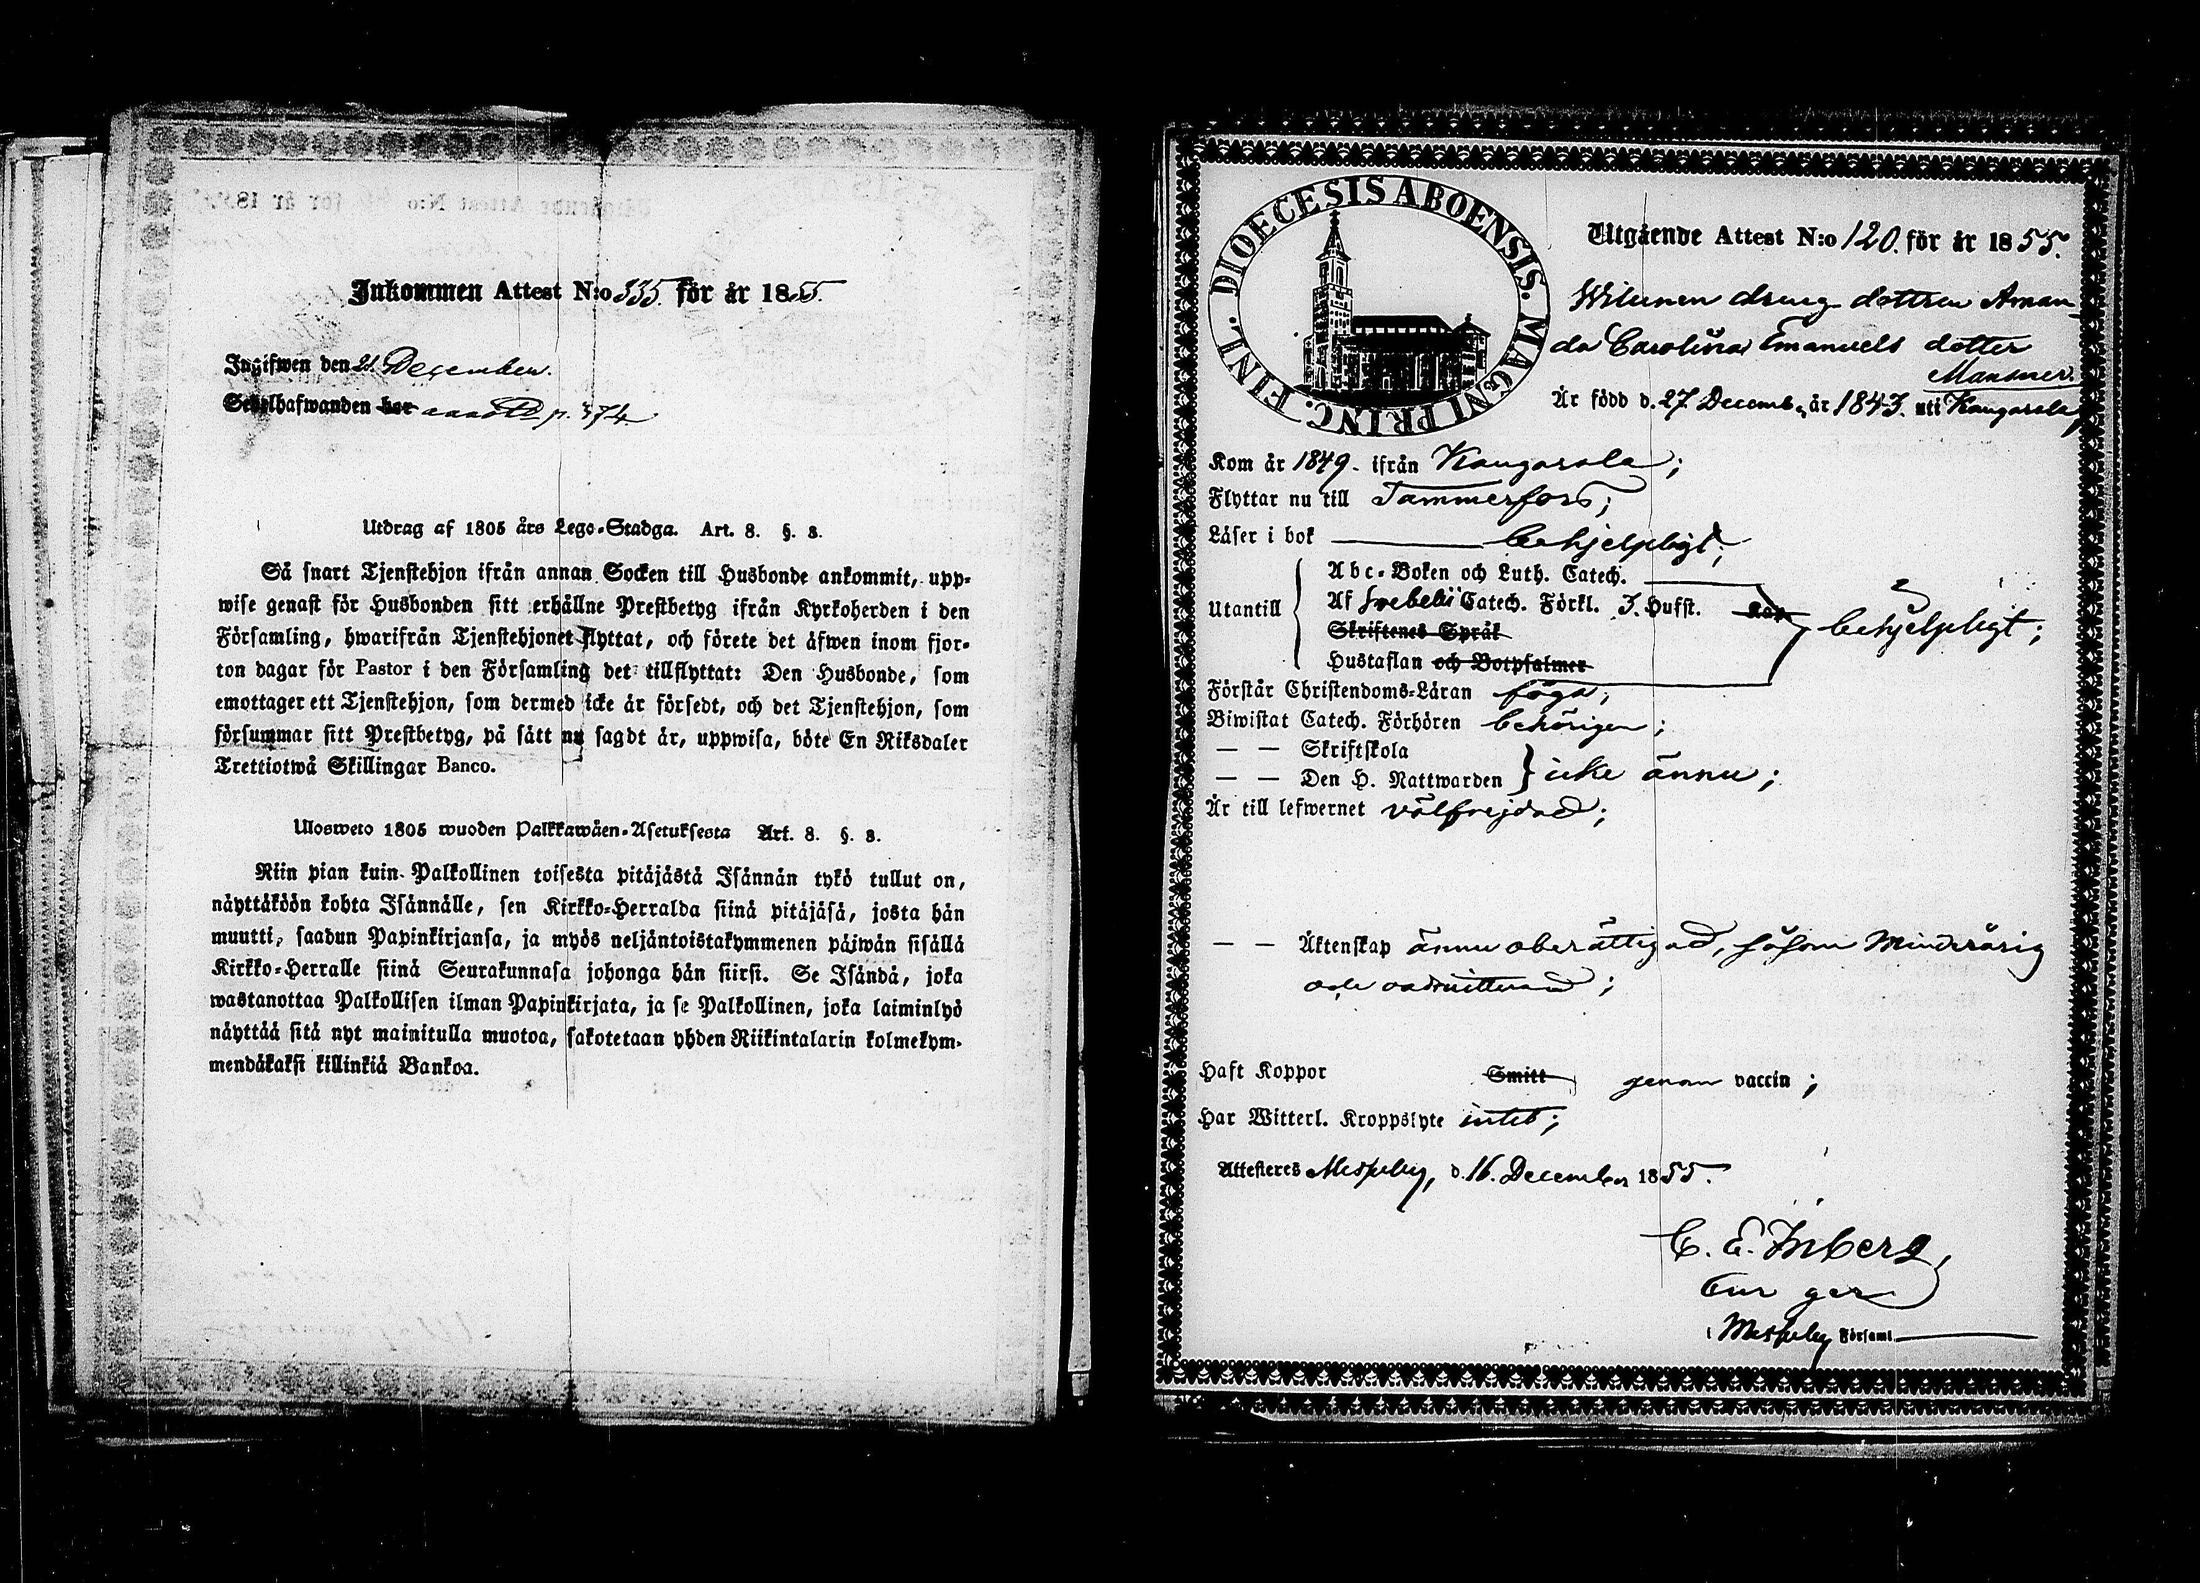 Inkommen Attest N:o 335. för år 1855.
Ingifwen den 21. December.
Innehafwanden
p. 374.
Utdrag af 1805 års Lego-Stadga. Art. 8. §. 8.
Så snart Tjenstehjon ifrån annan Socken till Husbonde ankommit, upp-
wise genast för Husbonden sitt erhållne Prestbetyg ifrån Kyrkoherden i den
Församling, hwarifrån Tjenstehjonet flyttat, och förete det äfwen inom fjor-
ton dagar för Pastor i den Församling det tillflyttat: Den Husbonde, som
emottager ett Tjenstehjon, som dermed icke är försedt, och det Tjenstehjon, som
försummar sitt Prestbetyg, på sätt nu sagdt är, uppwisa, böte En Riksdaler
Trettiotwå Skillingar Banco.
Ulosweto 1805 wuoden Palkkawäen-Asetuksesta Art. 8. §. 8.
Niin pian kuin Palkollinen toisesta pitäjästä Isännän tykö tullut on,
näyttäköön kohta Isännälle, sen Kirkko-Herralda siinä pitäjäsä, josta hän
muutti, saadun Papinkirjansa, ja myös neljäntoistakymmenen päiwän sisällä
Kirkko-Herralle siinä Seurakunnasa johonga hän siirsi. Se Isändä, joka
wastanottaa Palkollisen ilman Papinkirjata, ja se Palkollinen, joka laiminlyö
näyttää sitä nyt mainitulla muotoa, sakotetaan yhden Riikintalarin kolmekym-
mendäkaksi killinkiä Bankoa.
DIOECESIS ABOENSIS. MAGNI PRINC. FINL.
Utgående Attest N:o 120. för år 1855.
dreng dottren Aman-
da Carolina Emanuels dotter
Är född d. 27. Decemb. år 1843. uti Kangasala,
Kom år 1849. ifrån Kangasala;
Flyttar nu till Tammerfors;
Läser i bok behjelpligt;
Utantill
Abc-Boken och Luth. Catech.
Af Svebelii Catech. Förkl. 3. Hufst. Kap.
Skriftenes Språk
Hustaflan och Botpsalmer
behjelpligt;
Förstår Christendoms-Läran föga;
Biwistat Catech. Förhören behörigen;
— — Skriftskola
— — Den H. Nattwarden } icke ännu;
Är till lefwernet välfrejdad;
— — Äktenskap ännu oberättigad, såsom Minderårig
och oadmitterad;
Haft Koppor Smitt genom vaccin;
Har Witterl. Kroppslyte intet;
Attesteres Messuby, d. 16. December 1855.
C. E. Inberg,
i Messuby Församl.